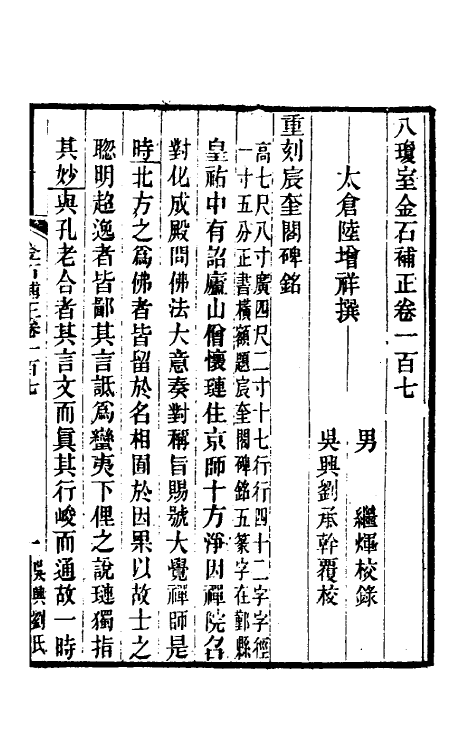 八瓊室金石補正卷一百七
太倉陸增祥撰
男　繼煇校錄
吳興劉承幹覆校
重刻宸奎閣碑銘
高七尺八寸廣四尺二寸十七行行四十二字字徑
一寸五分正書橫額題宸奎閣碑銘五篆字在鄞縣
皇祐中有詔廬山僧懷璉住京師十方淨因禪院名
對化成殿問佛法大意奏對稱旨賜號大覺禪師是
時北方之爲佛者皆留於名相囿於因果以故士之
聦明超逸者皆鄙其言詆爲蠻夷下俚之說璉獨指
其妙與孔老合者其言文而眞其行峻而通故一時
金石補正卷一百七
一
吳興劉氏